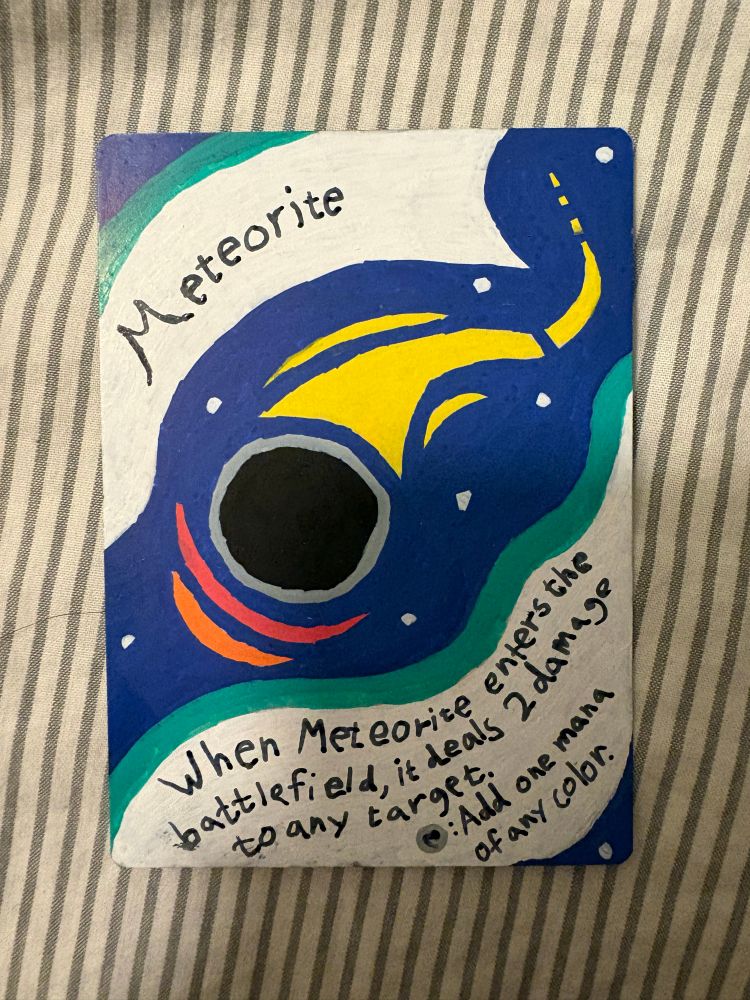 Meteorite
When Meteorite enters the
battlefield, it deals 2 damage
to any target.
:Add one mana
of any color.